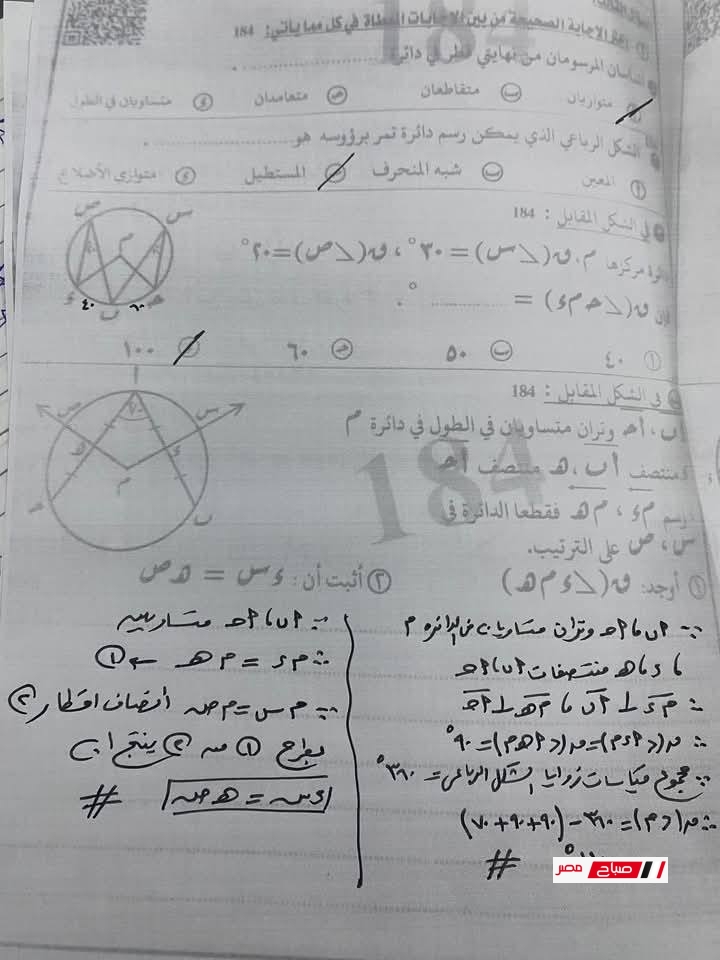 ① اختر الإجابة الصحيحة من بين الإجابات المعطاة في كل مما يأتي: 184
المماسان المرسومان من نهايتي قطر في دائرة ..............
متوازيان ب متقاطعان ج متعامدان د متساويان في الطول
الشكل الرباعي الذي يمكن رسم دائرة تمر برؤوسه هو ..............
أ المعين ب شبه المنحرف ج المستطيل د متوازي الأضلاع
في الشكل المقابل: 184
دائرة مركزها م، ق(∠س) = ٣٠°، ق(∠ص) = ٢٠°
فإن ق(∠حـ م ء) = .............. °.
أ ٤٠ ب ٥٠ ج ٦٠ ١٠٠
س ص م ء ب حـ ٤٠ ٦٠
في الشكل المقابل: 184
أب، أحـ وتران متساويان في الطول في دائرة م
ء منتصف أب، هـ منتصف أحـ
رسم م ء، م هـ فقطعا الدائرة في
س، ص على الترتيب.
① أوجد: ق(∠ء م هـ) ② أثبت أن: ء س = هـ ص
أ س ص ء هـ م ب حـ ٧٠
∵ أب، أحـ وتران متساويان في الدائرة م
، ء، هـ منتصفات أب، أحـ
∴ م ء ⊥ أب، م هـ ⊥ أحـ
ق(∠أ ء م) = ق(∠أ هـ م) = ٩٠°
∵ مجموع قياسات زوايا الشكل الرباعي = ٣٦٠°
∴ ق(∠م) = ٣٦٠ − (٩٠ + ٩٠ + ٧٠)
#
∵ أب، أحـ متساويين
∴ م ء = م هـ ← ①
∵ م س = م ص أنصاف أقطار ②
بطرح ① من ② ينتج أن
ء س = هـ ص
#
184
صباح مصر